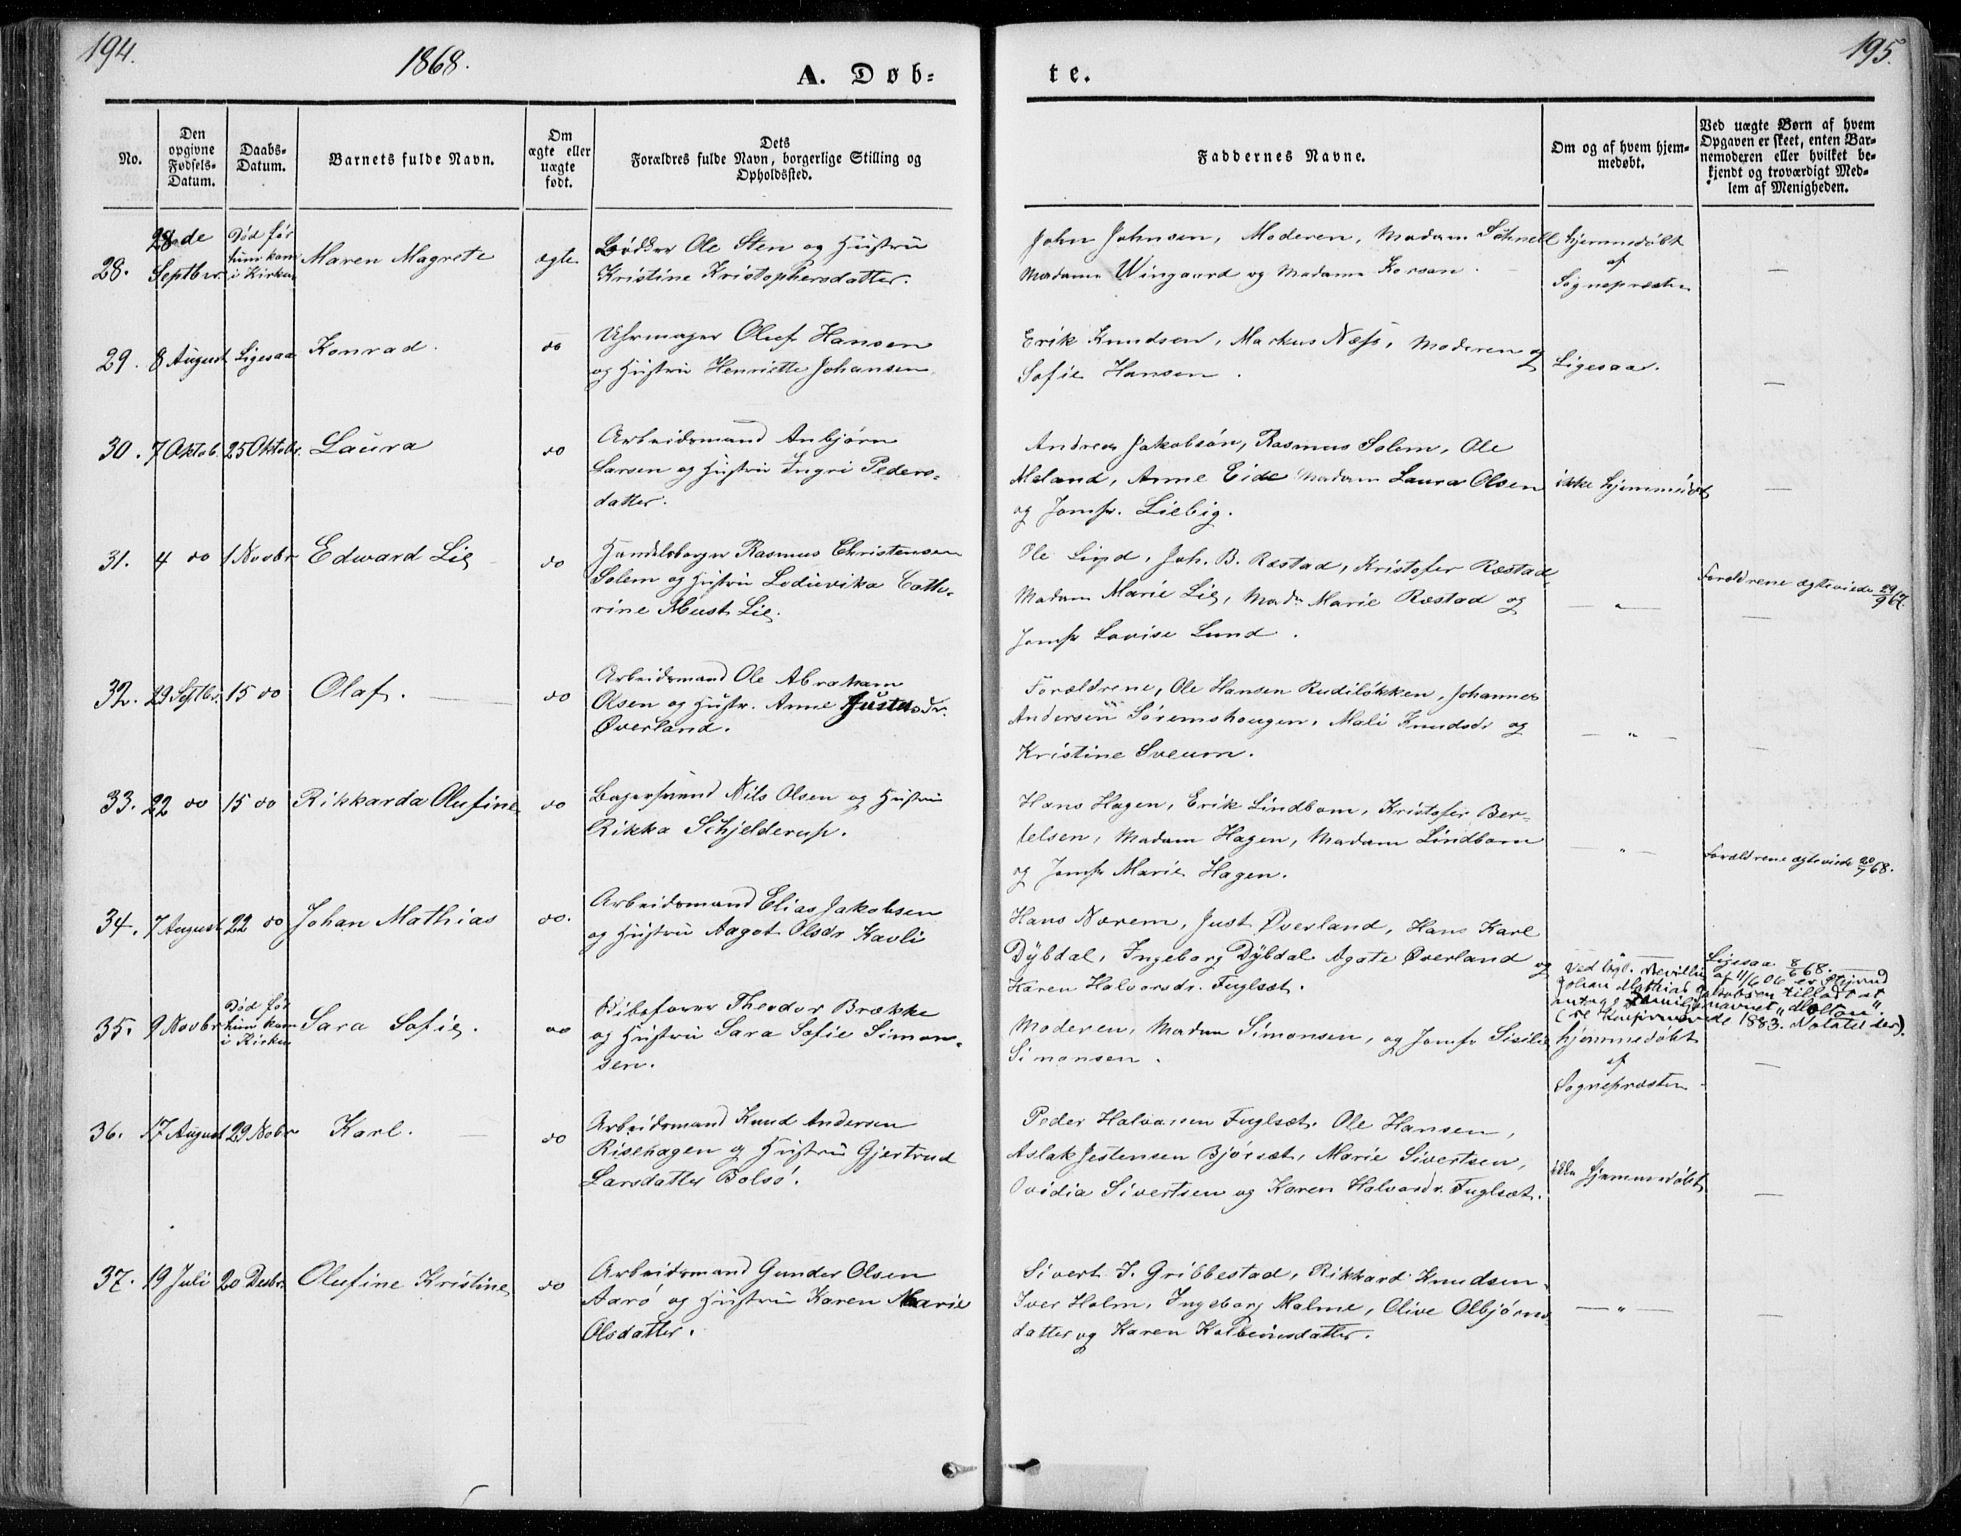 194.
1868.
A. Døb=
te.
195.
No.
Den opgivne Fødsels-Datum.
Daabs-Datum.
Barnets fulde Navn.
Om ægte eller uægte født.
Dets
Forældres fulde Navn, borgerlige Stilling og
Opholdssted.
Faddernes Navne.
Om og af hvem hjem-
medøbt.
Ved uægte Børn af hvem
Opgaven er skeet, enten Bar-
nemoderen eller hvilket be-
kjendt og troværdigt Med-
lem af Menigheden.
28. 28de Septbr. Død før hun kom i Kirken Maren Magrete ægte
Bødker Ole Sten og Hustru
Kristine Kristophersdatter.
John Johnsen, Moderen, Madam Schnell
Madam Wingaard og Madam Korsen.
hjemmedøbt
af
Sognepræsten
—
29. 8 August Ligesaa Konrad. do
Uhrmager Oluf Hansen
og Hustru Henriette Johansen
Erik Knudsen, Markus Næss, Moderen og
Sofie Hansen.
Ligesaa.
—
30. 7 Oktob. 25 Oktobr. Laura do
Arbeidsmand Anbjørn
Larsen og Hustru Ingri Peders-
datter.
Andreas Jakobsøn, Rasmus Solem, Ole
Meland, Anne Eide Madam Laura Olsen
og Jomfr. Liebig.
ikke hjemmedøbt
—
31. 4 do 1 Novbr Edward Lie do
Handelsborger Rasmus Christensen
Solem og Hustru Lodievika Cathe-
rine Must Lie.
Ole Lind, Joh. B. Ræstad, Kristofer Ræstad
Madam Marie Lie, Mad. Marie Ræstad og
Jomfr Lovise Lund.
— " —
Forældrene ægteviede 29/9 67.
—
32. 29 Septbr. 15 do Olaf. do
Arbeidsmand Ole Abraham
Olsen og Hustr. Anne Justensdr.
Øverland.
Forældrene, Ole Hansen Rudiløkken, Johannes
Andersen Søremshougen, Mali Knudsdr og
Kristine Sveum.
— " —
—
33. 22 do 15 do Rikkarda Olufine do
Bagersvend Nils Olsen og Hustru
Rikka Schjelderup.
Hans Hagen, Erik Lindbom, Kristofer Ber-
telsen, Madam Hagen, Madam Lindbom
og Jomfr Marie Hagen.
— " —
Forældrene ægteviede 20/7 68.
34. 7 August 22 do Johan Mathias do.
Arbeidsmand Elias Jakobsen
og Hustru Aagot Olsdr Kavli
Hans Nærem, Just Øverland, Hans Karl
Dybdal, Ingeborg Dybdal. Agate Øverland og
Karen Halvorsdr. Fuglset.
Ligesaa 8/6 68.
Ved kgl. Bevilling af 11/6 06 er Styrmd
Johan Mathias Jakobsen tilladt at
antage Familienavnet "Moltau".
(se Konfirmerede 1883. Notatet der).
35. 9 Novbr Død før hun kom i Kirken Sara Sofie. do
Vibefører Theodor Brække
og Hustru Sara Sofie Simon-
sen.
Moderen, Madam Simonsen, og Jomfr Sisilie
Simonsen.
hjemmedøbt
af
Sognepræsten
—
36. 17 August 29 Nobr Karl. do
Arbeidsmand Knud Andersen
Risehagen og Hustru Gjertrud
Larsdatter Bolsø.
Peder Halvorsen Fuglset. Ole Hansen,
Aslak Jestensen Bjørset, Marie Sivertsen,
Ovidia Sivertsen og Karen Halvorsdr. Fuglset.
ikke hjemmedøbt
—
37. 19 Juli 20 Desbr. Olufine Kristine do
Arbeidsmand Gunder Olsen
Aarø og Hustru Karen Marie
Olsdatter.
Sivert J. Gribbestad, Rikkard Knudsen
Iver Holm, Ingeborg Malme, Olive Olbjørns-
datter og Karen Kolbeinsdatter.
— " —
—